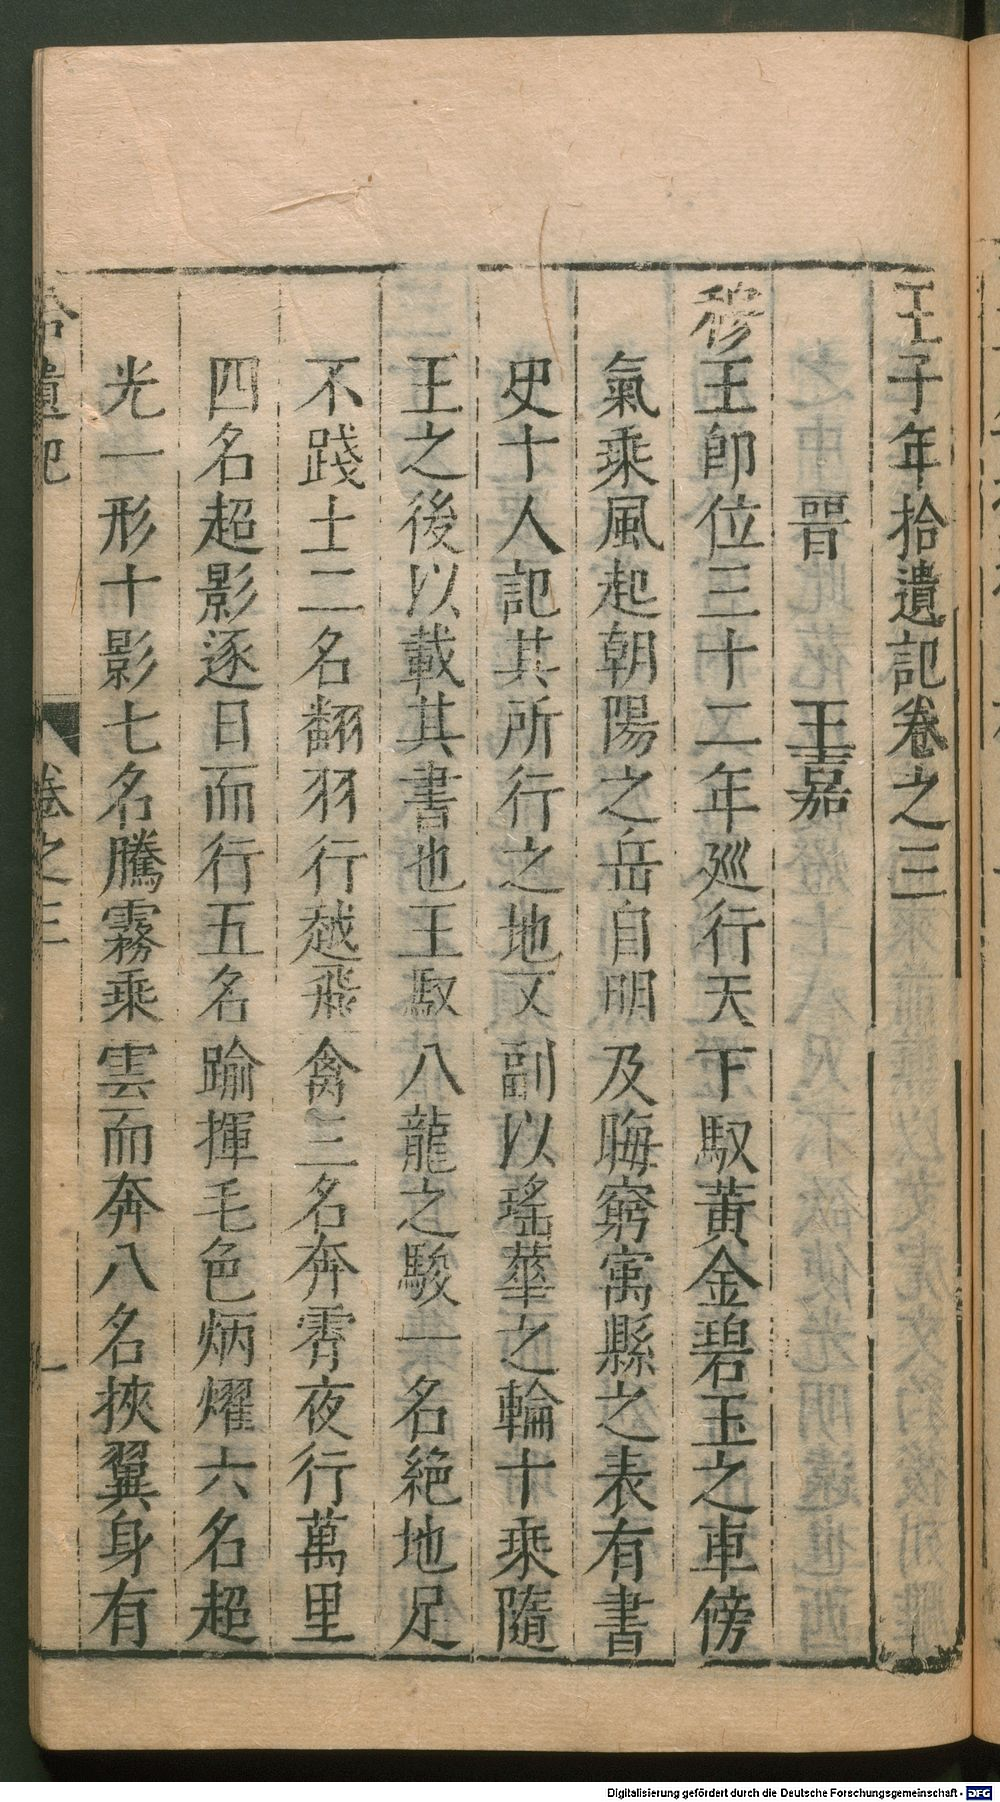 王子年拾遺記卷之三
晉 王嘉
穆王卽位三十二年廵行天下馭黃金碧玉之車傍
氣乘風起朝陽之岳自明及晦窮㝢縣之表有書
史十人記其所行之地又副以瑤華之輪十乘隨
王之後以載其書也王馭八龍之駿一名絶地足
不踐土二名翻羽行越飛禽三名奔霄夜行萬里
四名超影逐日而行五名踰揮毛色炳燿六名超
光一形十影七名騰霧乘雲而奔八名挾翼身有
拾遺記 卷之三 一
Digitalisierung gefördert durch die Deutsche Forschungsgemeinschaft - DFG